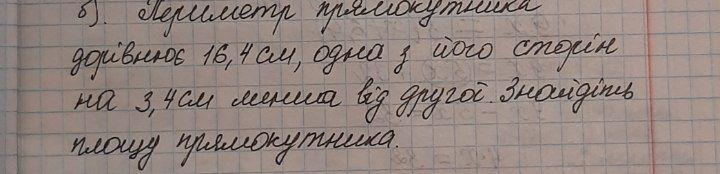 б). Периметр прямокутника
дорівнює 16,4 см, одна з його сторін
на 3,4 см менша від другої. Знайдіть
площу прямокутника.